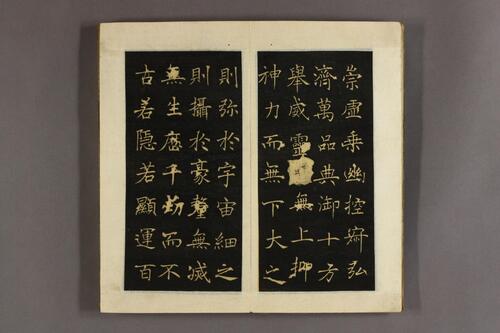 崇虛乘幽控寂弘
濟萬品典御十方
舉威靈無上抑
神力而無下大之
則弥於宇宙細之
則攝於豪釐無滅
無生歷千劫而不
古若隱若顯運百